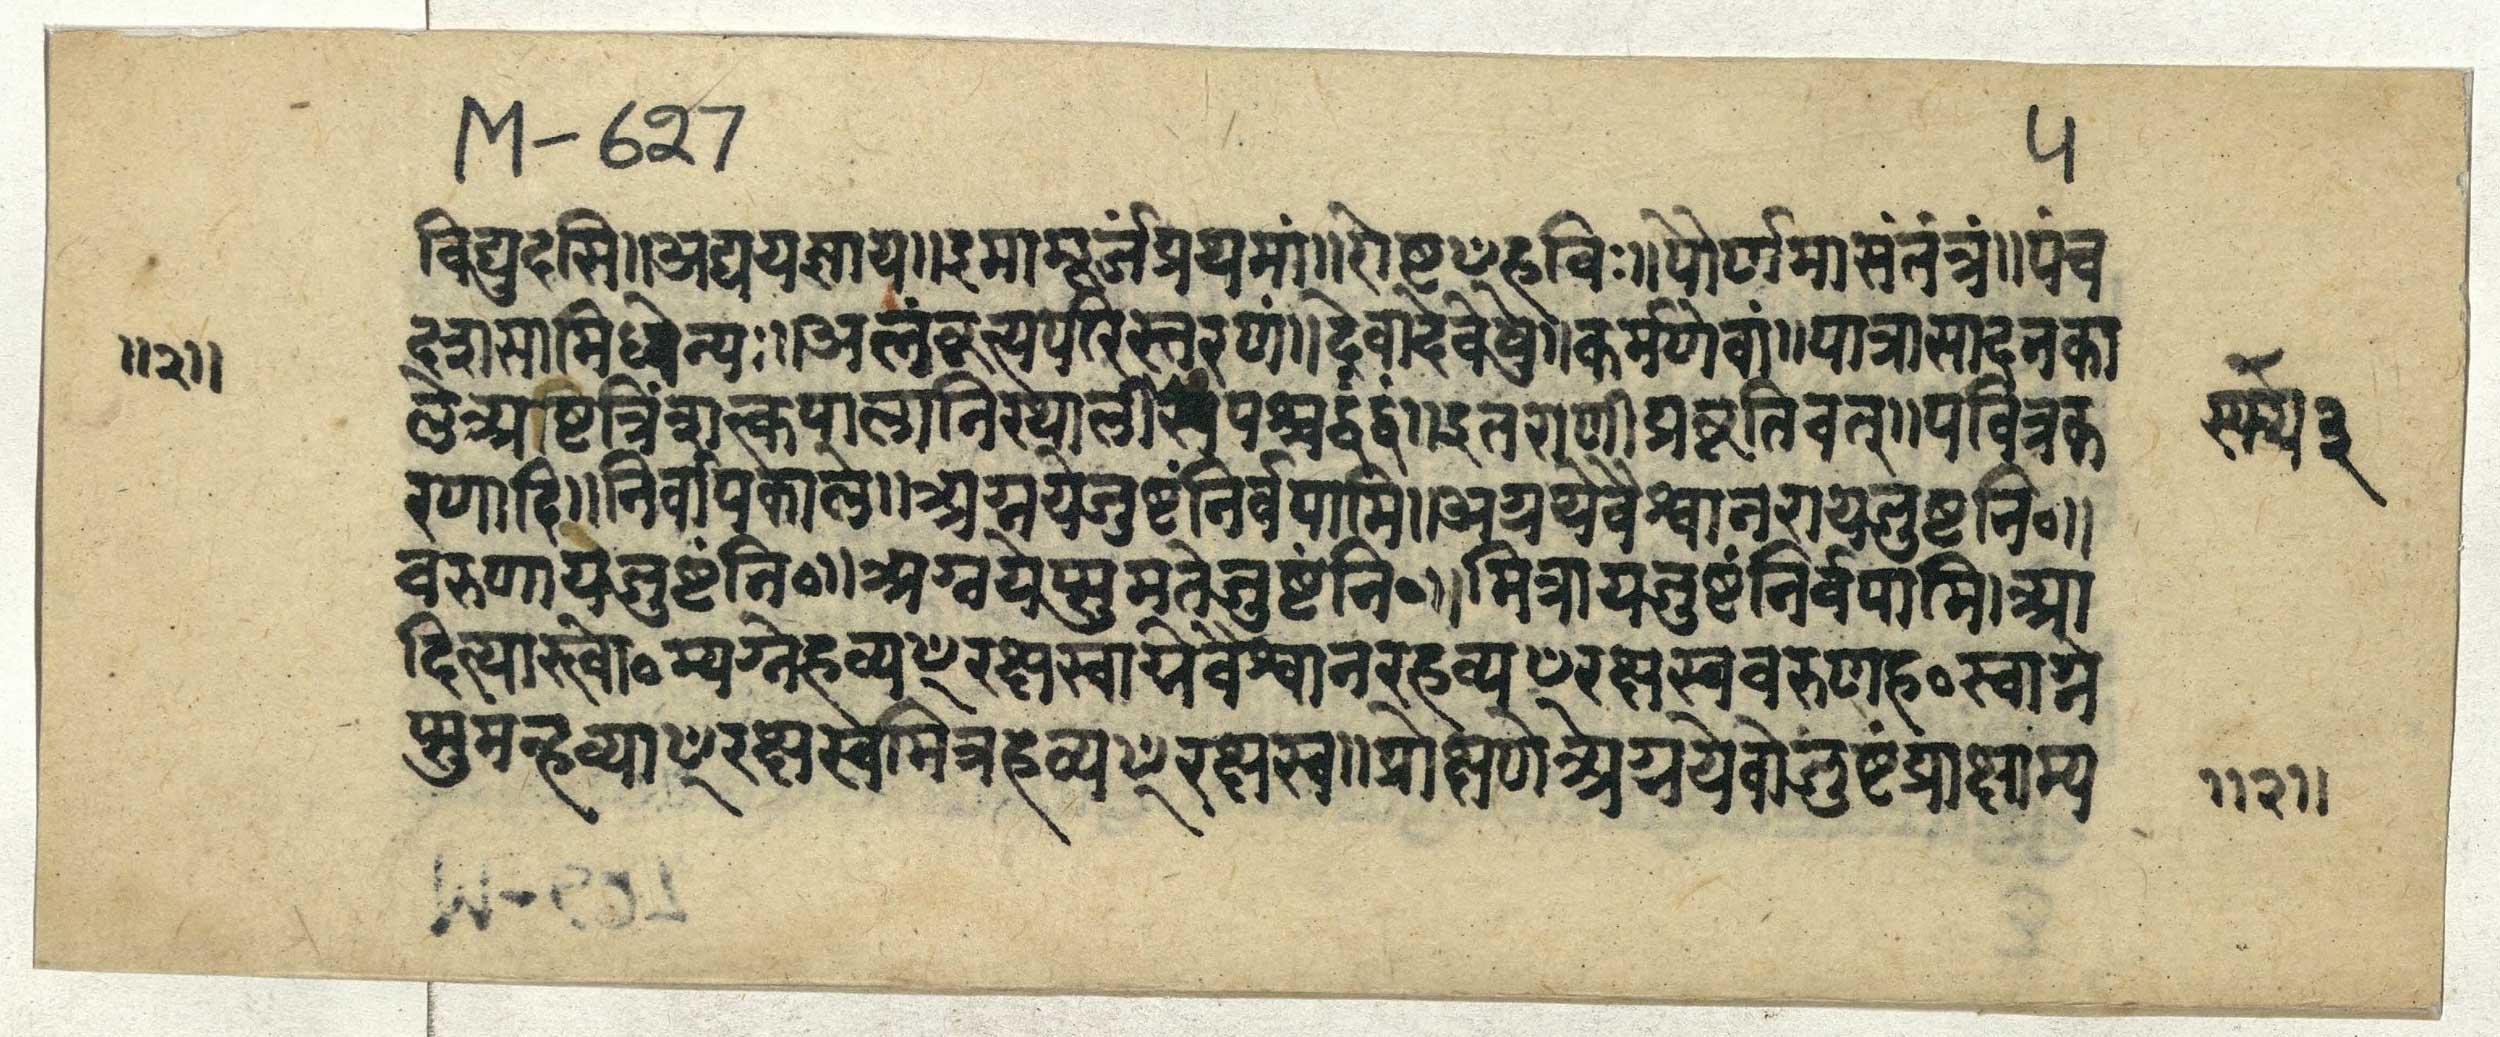 M-627
५
विद्युदसि॥अद्ययज्ञाय॥इमामूर्जंप्रथमां॥रोष्टꣳहविः॥पौर्णमासंतंत्रं॥पंच
॥२॥
दशसामिधेन्यः॥अलंकृत्यपरिस्तरणं॥देवादेवेषु॥कर्मणेवां॥पात्रासादनका
लेअष्टित्रिंशत्कपालानिस्थालीस्फ्यपश्चद्वंद्वं॥इतराणीप्रकृतिवत्॥पवित्रक
स्फ्य ३
रणादि॥निर्वापकाल॥अग्नयेजुष्टंनिर्वपामि॥अग्नयेवैश्वानरायजुष्टनि०॥
वरुणायजुष्टंनि०॥अग्नयेप्सुमतेजुष्टंनि०॥मित्रायजुष्टंनिर्वपामि।आ
दित्यास्त्वो०म्यग्नेहव्यꣳरक्षस्वाग्नेवैश्वानरहव्यꣳरक्षस्ववरुणह०स्वाग्ने
प्सुमन्हव्याꣳरक्षस्वमित्रहव्यꣳरक्षस्व॥प्रोक्षणेअग्नयेवोजुष्टंप्राक्षाम्य
॥२॥